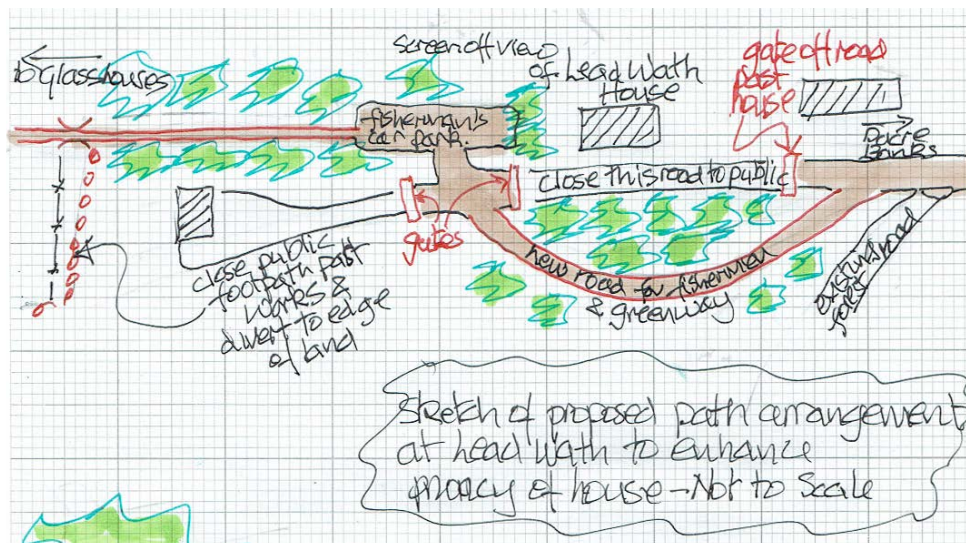 to Glasshouses
screen off view
of Lead Wath
House
gate off road
past
house
fisherman's
car park.
Dacre
Banks
close this road to public
gates
close public
footpath past
works &
divert to edge
of land
new road for fishermen
& greenway
existing road
forest
Sketch of proposed path arrangement
at Lead Wath to enhance
privacy of house - Not to Scale